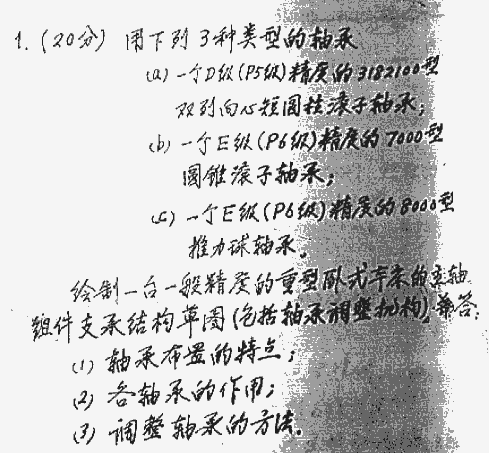 1. (20分) 用下列3种类型的轴承
(a) 一个D级(P5级)精度的3182100型
双列向心短圆柱滚子轴承;
(b) 一个E级(P6级)精度的7000型
圆锥滚子轴承;
(c) 一个E级(P6级)精度的8000型
推力球轴承。
绘制一台一般精度的重型卧式车床的主轴
组件支承结构草图(包括轴承调整机构),并答:
(1) 轴承布置的特点;
(2) 各轴承的作用;
(3) 调整轴承的方法.